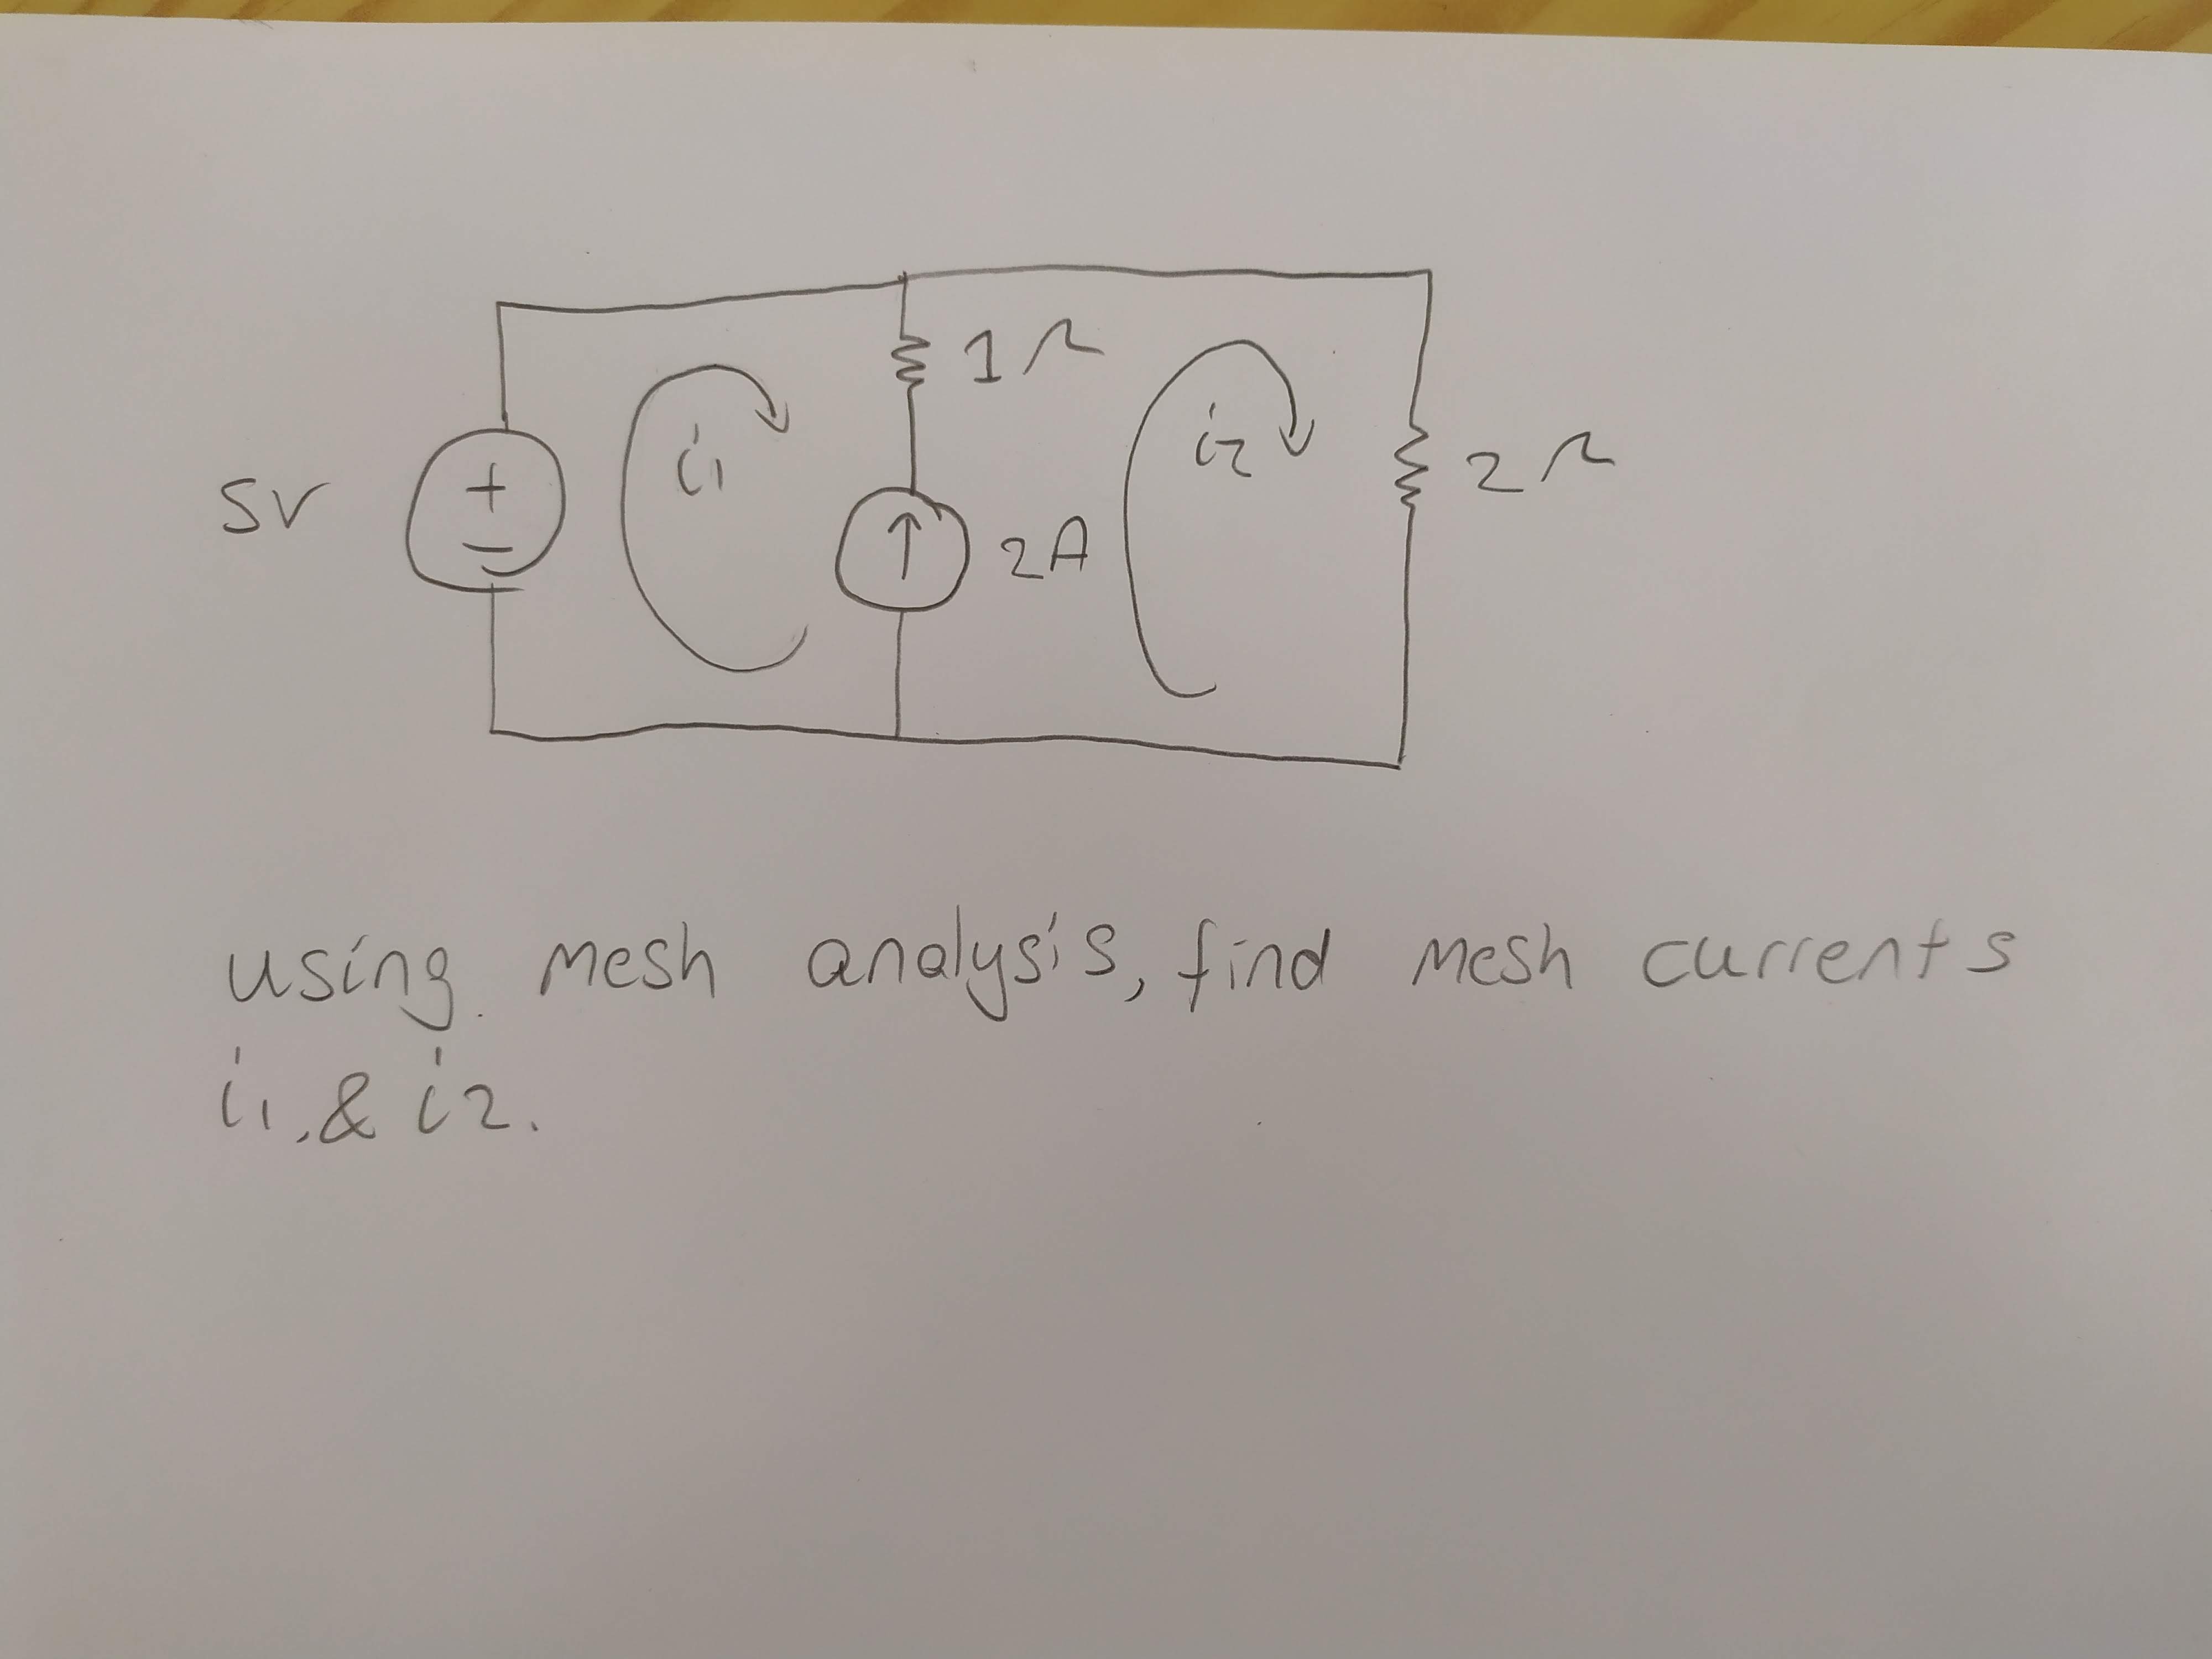 1Ω
i1
i2
5V
+
−
2Ω
2A
using mesh analysis, find mesh currents
i1, & i2.